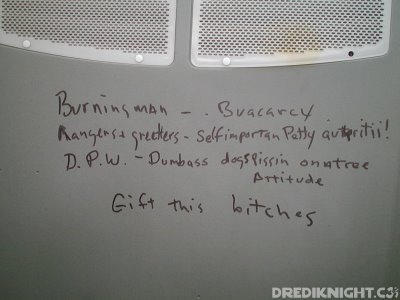 Burningman - . Bvacarcy
Rangers + greeters - Self importan Patty autpritii!
D.P.W. - Dumbass dogs pissin on a tree
Attitude
Gift this bitches
DREDIKNIGHT.C